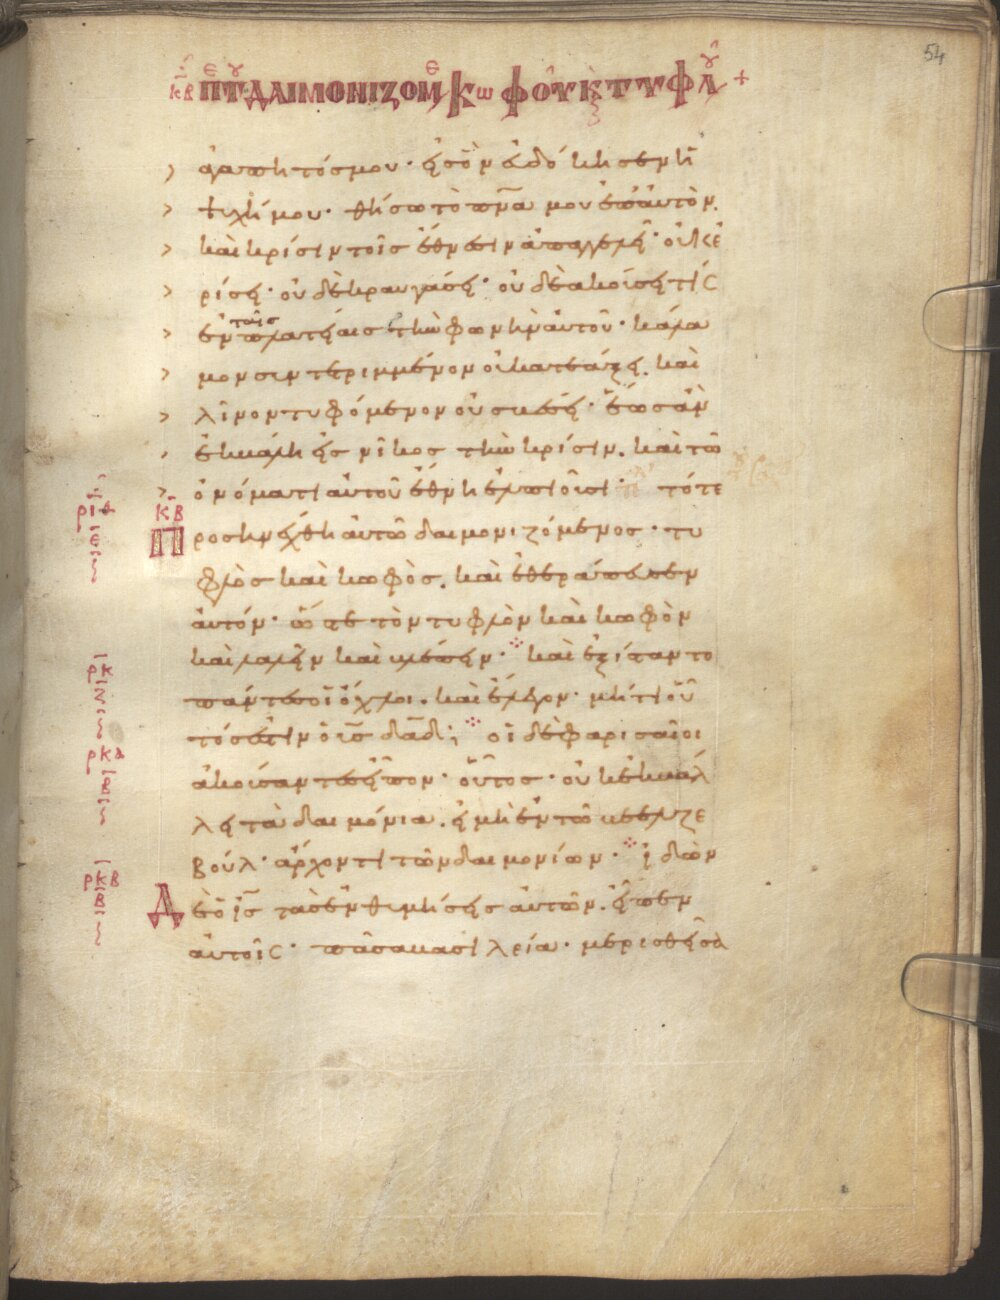 54
κβ περὶ τοῦ δαιμονιζομέν κωφοῦ κ τυφλοῦ +
ἀγαπητός μου· εἰς ὃν εὐδόκησεν ἡ
ψυχή μου· θήσω τὸ πνα μου ἐπ' αὐτὸν.
καὶ κρίσιν τοῖς ἔθνεσιν ἀπαγγελεῖ· οὐκ ἐ
ρίσει· οὐδὲ κραυγάσει· οὐδὲ ἀκούσει τὶς
ἐν ταῖς πλατείαις τὴν φωνὴν αὐτοῦ· κάλα
μον συντετριμμένον οὐ κατεάξει. καὶ
λῖνον τυφόμενον οὐ σβέσει· ἕως ἂν
ἐκβάλη εἰς νῖκος τὴν κρίσιν. καὶ τῶ
ὀνόματι αὐτοῦ ἔθνη ἐλπιοῦσι· τότε
κβ
Προσηνέχθη αὐτῶ δαιμονιζόμενος· τυ
φλὸς καὶ κωφὸς. καὶ ἐθεράπευσεν
αὐτόν· ὥστε τὸν τυφλὸν καὶ κωφὸν
ρκ
καὶ λαλεῖν καὶ βλέπειν· καὶ ἐξίσταντο
πάντες οἱ ὄχλοι. καὶ ἔλεγον· μήτι οὗ
τός ἐστιν ὁ ις δαδ; οἱ δὲ φαρισαῖοι
ρκα
ἀκούσαντες εἶπον· οὗτος· οὐκ ἐκβάλ
λει τὰ δαιμόνια. εἰ μὴ ἐν τῶ βεελζε
βούλ· ἄρχοντι τῶν δαιμονίων· ἰδὼν
ρκβ
Δὲ ὁ ις τὰς ἐνθυμήσεις αὐτῶν. εἶπεν
αὐτοῖς· πᾶσα βασιλεία· μερισθεῖσα